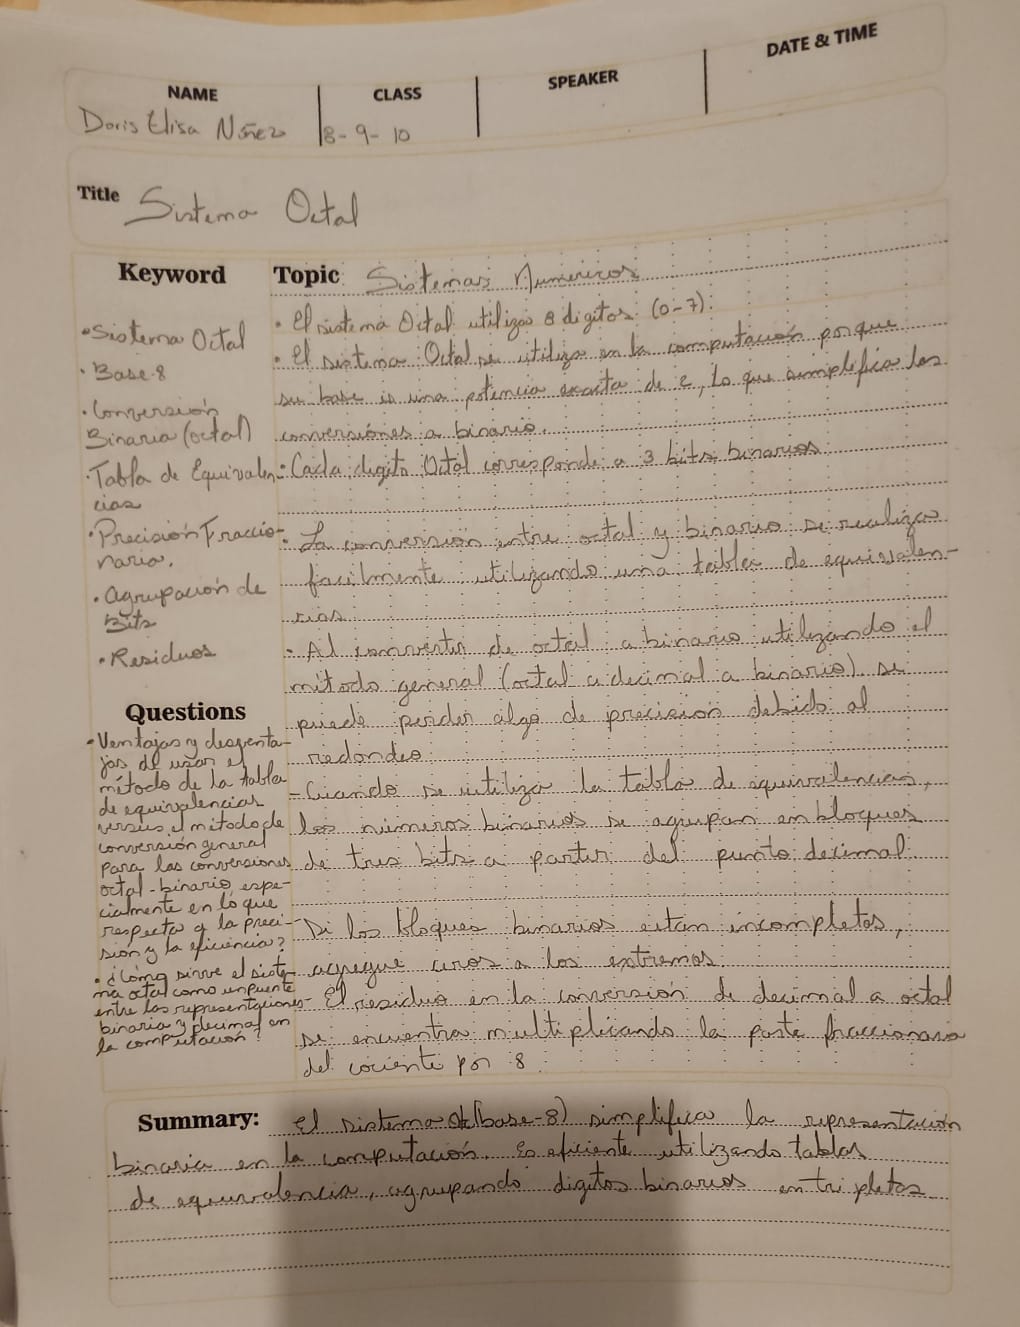 NAME
CLASS
SPEAKER
DATE & TIME
Doris Elisa Núñez
8-9-10
Title Sistema Octal
Keyword
• Sistema Octal
• Base 8
• Conversión
Binaria (octal)
• Tabla de Equivalen-
cias
• Precisión Fraccio-
naria.
• Agrupación de
Bits
• Residuos
Questions
• Ventajas y desventa-
jas de usar el
método de la tabla
de equivalencias
versus el método de
conversión general
para las conversiones
octal-binario, espe-
cialmente en lo que
respecta a la preci-
sión y la eficiencia?
• ¿Cómo sirve el siste-
ma octal como un puente
entre las representaciones
binaria y decimal en
la computación?
Topic Sistemas Numericos
• El sistema Octal utiliza 8 digitos (0-7).
• El sistema Octal se utiliza en la computación porque
su base is una potencia exacta de 2, lo que simplifica las
conversiones a binario.
• Cada digito Octal corresponde a 3 bits binarios
- La conversión entre octal y binario se realiza
facilmente utilizando una tabla de equivalen-
cias
- Al convertir de octal a binario utilizando el
método general (octal a decimal a binario) se
puede perder algo de precisión debido al
redondeo
- Cuando se utiliza la tabla de equivalencias,
los números binarios se agrupan en bloques
de tres bits a partir del punto decimal
- Si los bloques binarios estan incompletos,
agregue ceros a los extremos
- El residuo en la conversión de decimal a octal
se encuentra multiplicando la parte fraccionaria
del cociente por 8
Summary: El sistema Oct (base-8) simplifica la representación
binaria en la computación. Es eficiente utilizando tablas
de equivalencia, agrupando digitos binarios en tripletas